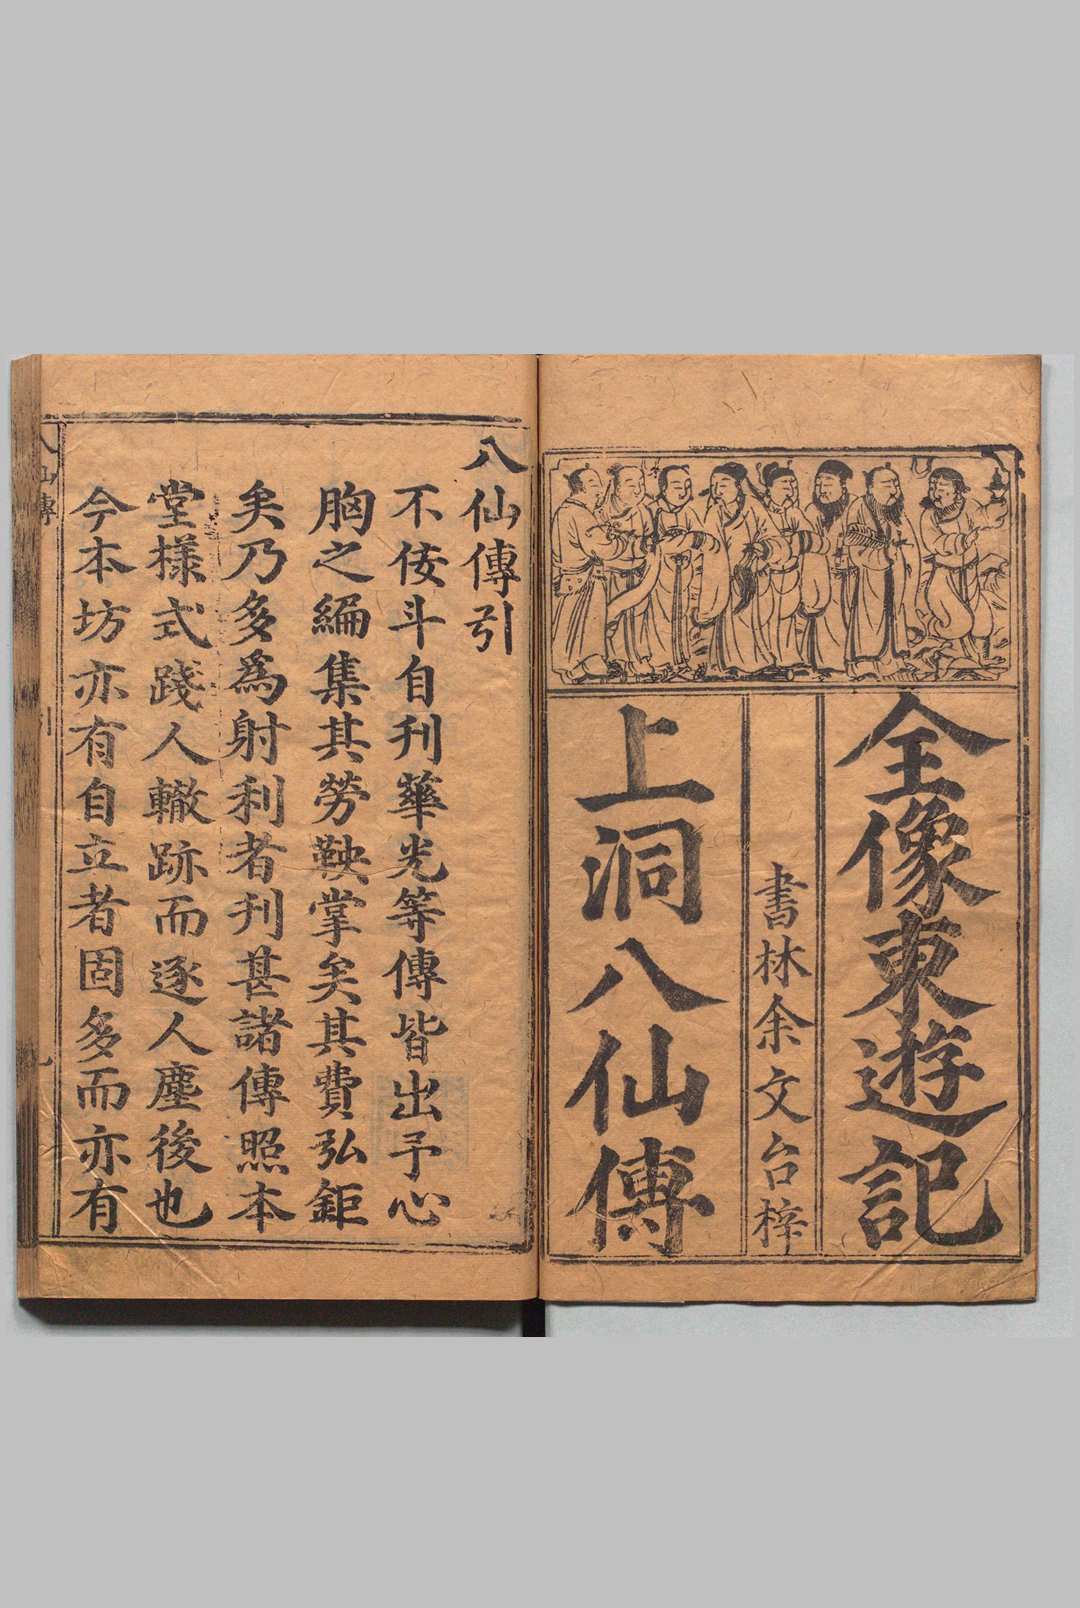 全像東遊記
書林余文台梓
上洞八仙傳
八仙傳引
不佞斗自刊華光等傳皆出予心
胸之編集其勞鞅掌矣其費弘鉅
矣乃多為射利者刊甚諸傳照本
堂樣式踐人轍跡而逐人塵後也
今本坊亦有自立者固多而亦有
八仙傳
引
一